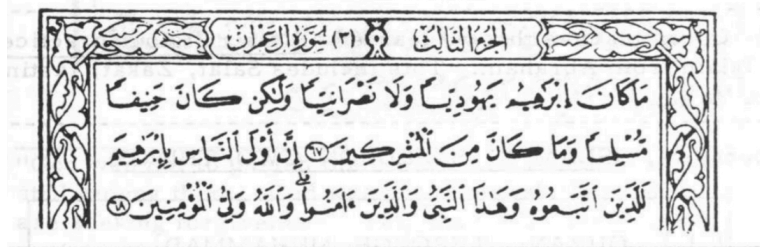 الجزء الثالث (٣) سورة آل عمران
مَا كَانَ إِبْرَٰهِيمُ يَهُودِيًّا وَلَا نَصْرَانِيًّا وَلَٰكِن كَانَ حَنِيفًا
مُّسْلِمًا وَمَا كَانَ مِنَ ٱلْمُشْرِكِينَ ٦٧ إِنَّ أَوْلَى ٱلنَّاسِ بِإِبْرَٰهِيمَ
لَلَّذِينَ ٱتَّبَعُوهُ وَهَٰذَا ٱلنَّبِىُّ وَٱلَّذِينَ ءَامَنُوا۟ ۗ وَٱللَّهُ وَلِىُّ ٱلْمُؤْمِنِينَ ٦٨